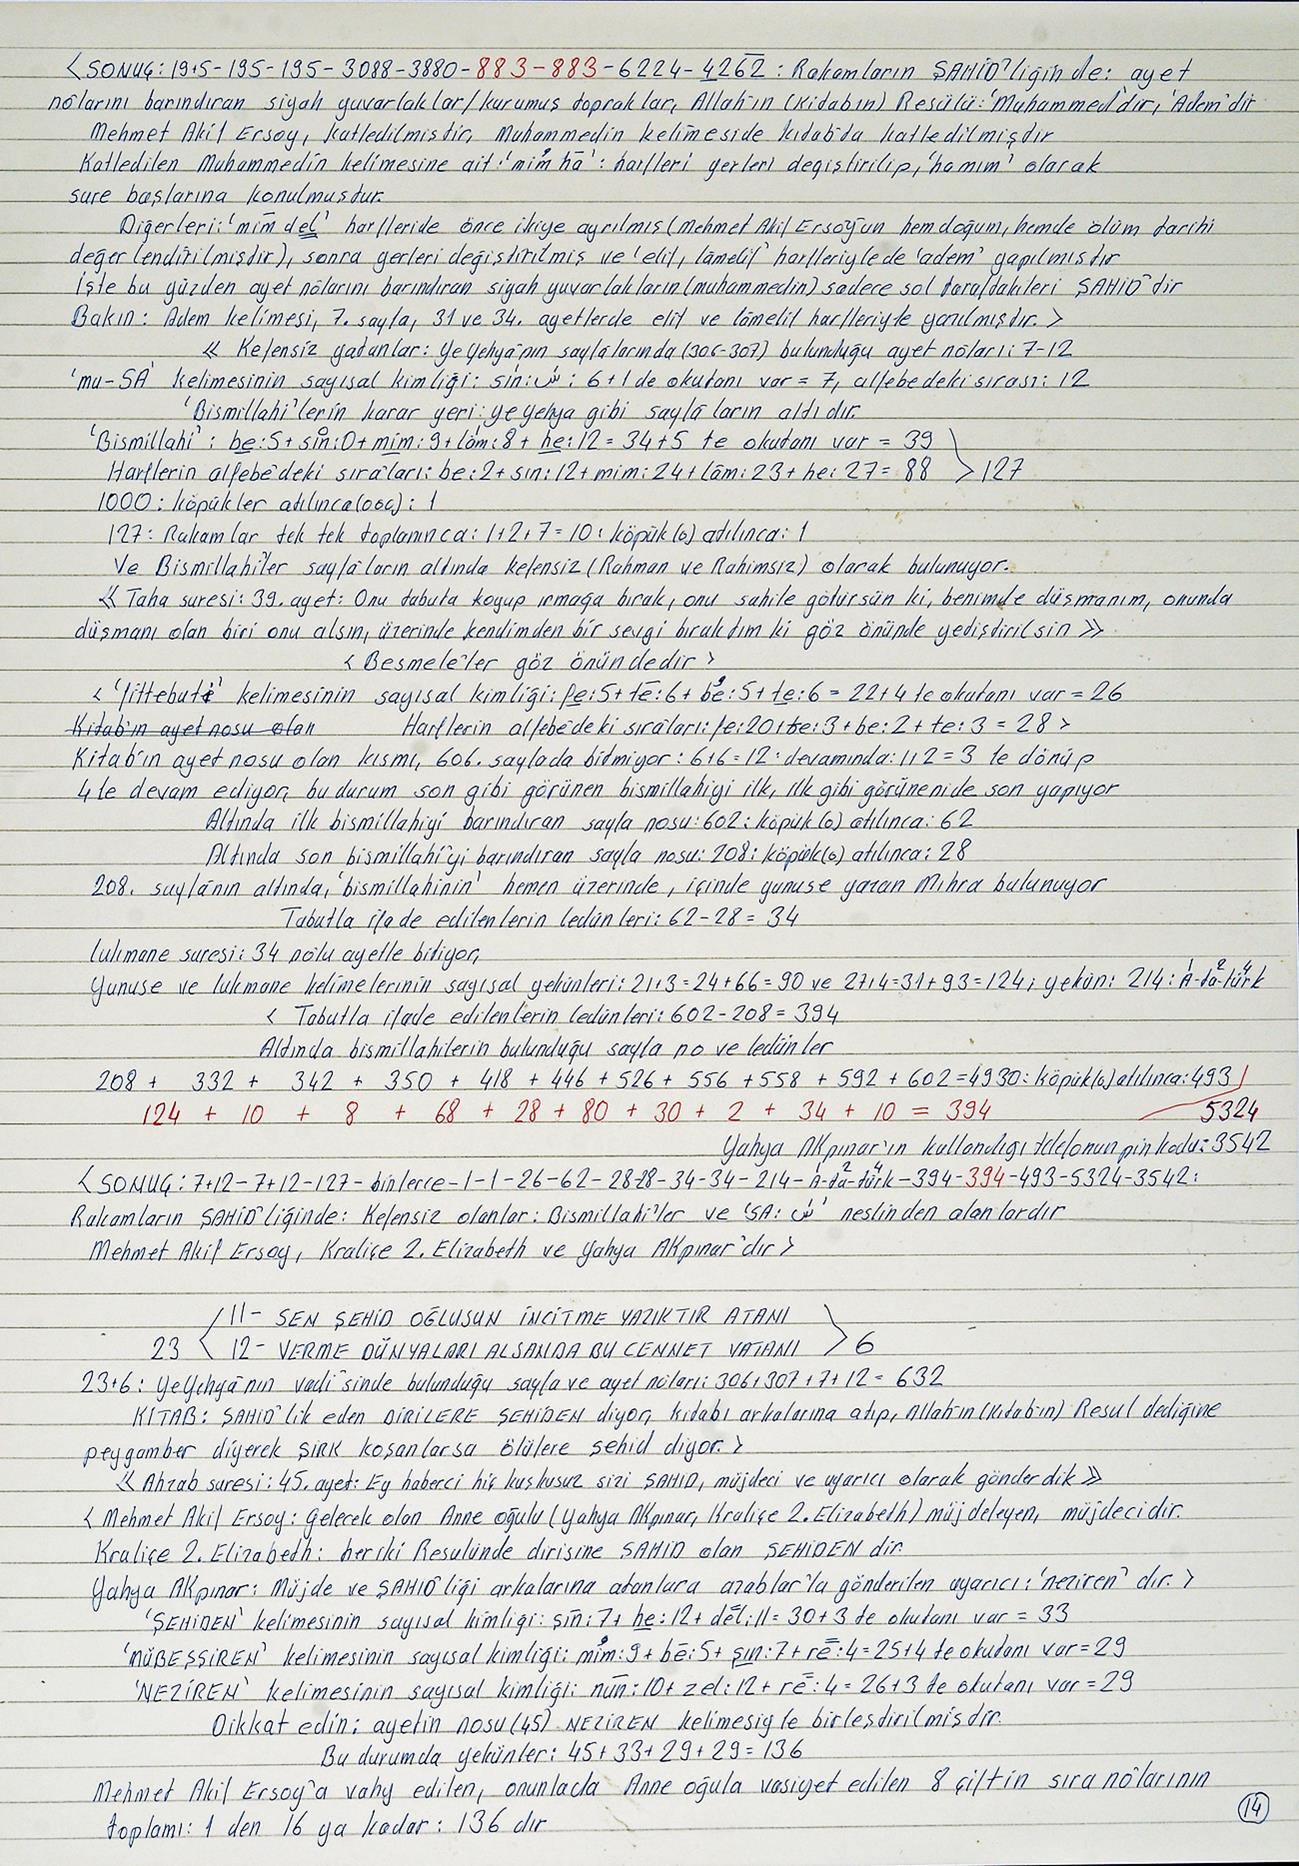 < SONUÇ: 19+5-195-195-3088-3880-883-883-6224-4262 : Rakamların ŞAHİD'liğinde: ayet
nolarını barındıran siyah yuvarlaklar/kurumuş topraklar, Allah'ın (Kitabın) Resülü: 'Muhammed'dir, 'Adem'dir
Mehmet Akif Ersoy, katledilmiştir, Muhammedin kelimeside kitab'da katledilmiştir
Katledilen Muhammedin kelimesine ait: 'mim hā': harfleri yerleri değiştirilip, 'hamim' olarak
sure başlarına konulmuştur.
Diğerleri: 'mim del' harfleride önce ikiye ayrılmış (Mehmet Akif Ersoy'un hem doğum, hemde ölüm tarihi
değerlendirilmiştir), sonra yerleri değiştirilmiş ve 'elif, lâmelif' harfleriylede 'adem' yapılmıştır
İşte bu yüzden ayet nolarını barındıran siyah yuvarlakların (muhammedin) sadece sol taraftakileri ŞAHİD'dir
Bakın: Adem kelimesi, 7. sayfa, 31 ve 34. ayetlerde elif ve lâmelif harfleriyle yazılmıştır. >
« Kefensiz yatanlar: Yeyehya'nın sayfalarında (306-307) bulunduğu ayet noları: 7-12
'mu-SA' kelimesinin sayısal kimliği: sin: س : 6+1 de okutanı var = 7, alfebedeki sırası: 12
'Bismillahi'lerin karar yeri: yeyehya gibi sayfaların altıdır.
'Bismillahi': be:5+ sin:0+ mim:9+ lâm:8+ he:12 = 34+5 te okutanı var = 39
Harflerin alfebedeki sıraları: be:2+ sin:12+ mim:24+ lâm:23+ he:27= 88 > 127
1000: köpükler atılınca (000): 1
127: Rakamlar tek tek toplanınca: 1+2+7=10: köpük (0) atılınca: 1
Ve Bismillahi'ler sayfaların altında kefensiz (Rahman ve Rahimsiz) olarak bulunuyor.
« Taha suresi: 39. ayet: Onu tabuta koyup ırmağa bırak, onu sahile götürsün ki, benimde düşmanım, onunda
düşmanı olan biri onu alsın, üzerinde kendimden bir sevgi bıraktım ki göz önünde yetiştirilsin »
< Besmele'ler göz önündedir >
< 'fittebuti' kelimesinin sayısal kimliği: fe:5+ te:6+ be:5+ te:6 = 22+4 te okutanı var = 26
Kitab'ın ayet nosu olan Harflerin alfebedeki sıraları: fe:20+ te:3+ be:2+ te:3 = 28 >
Kitab'ın ayet nosu olan kısmı, 606. sayfada bitmiyor: 6+6=12: devamında: 1+2=3 te dönüp
4 le devam ediyor, bu durum son gibi görünen bismillahiyi ilk, ilk gibi görünenide son yapıyor
Altında ilk bismillahiyi barındıran sayfa nosu: 602: köpük (0) atılınca: 62
Altında son bismillahi'yi barındıran sayfa nosu: 208: köpük (0) atılınca: 28
208. sayfanın altında, 'bismillahinin' hemen üzerinde, içinde yunuse yazan Mihra bulunuyor
Tabutla ifade edilenlerin ledünleri: 62-28= 34
lukmane suresi: 34 nolu ayetle bitiyor,
Yunuse ve lukmane kelimelerinin sayısal yekünleri: 21+3=24+66=90 ve 27+4=31+93=124; yekün: 214: A-ta-türk
1 2 4
< Tabutla ifade edilenlerin ledünleri: 602-208= 394
Altında bismillahilerin bulunduğu sayfa no ve ledünler
208 + 332 + 342 + 350 + 418 + 446 + 526 + 556 + 558 + 592 + 602 = 4930: köpük (0) atılınca: 493
124 + 10 + 8 + 68 + 28 + 80 + 30 + 2 + 34 + 10 = 394 5324
Yahya AKpınar'ın kullandığı telefonun pin kodu: 3542
< SONUÇ: 7+12-7+12-127- binlerce-1-1-26-62-28-28-34-34-214-A-ta-türk-394-394-493-5324-3542:
Rakamların ŞAHİD'liğinde: Kefensiz olanlar: Bismillahi'ler ve 'SA: س' neslinden olanlardır
Mehmet Akif Ersoy, Kraliçe 2. Elizabeth ve Yahya AKpınar'dır >
11- SEN ŞEHİD OĞLUSUN İNCİTME YAZIKTIR ATANI
23 < 12- VERME DÜNYALARI ALSANDA BU CENNET VATANI > 6
23+6: Yeyehya'nın vadi'sinde bulunduğu sayfa ve ayet noları: 306+307+7+12= 632
KİTAB: ŞAHİD'lik eden DİRİLERE ŞEHİDEN diyor, kitabı arkalarına atıp, Allah'ın (Kitab'ın) Resul dediğine
peygamber diyerek ŞİRK koşanlarsa ölülere şehid diyor. >
« Ahzab suresi: 45. ayet: Ey haberci hiç kuşkusuz sizi ŞAHİD, müjdeci ve uyarıcı olarak gönderdik »
< Mehmet Akif Ersoy: Gelecek olan Anne oğulu (Yahya AKpınar, Kraliçe 2. Elizabeth) müjdeleyen, müjdecidir.
Kraliçe 2. Elizabeth: her iki Resulünde dirisine ŞAHİD olan ŞEHİDEN dir.
Yahya AKpınar: Müjde ve ŞAHİD'liği arkalarına atanlara azablar'la gönderilen uyarıcı: 'neziren' dir. >
'ŞEHİDEN' kelimesinin sayısal kimliği: şin:7+ he:12+ del:11= 30+3 te okutanı var = 33
'MÜBEŞŞİREN' kelimesinin sayısal kimliği: mim:9+ be:5+ şın:7+ re:4=25+4 te okutanı var=29
'NEZİREN' kelimesinin sayısal kimliği: nun:10+ zel:12+ re:4=26+3 te okutanı var =29
Dikkat edin: ayetin nosu (45) NEZİREN kelimesiyle birleştirilmiştir.
Bu durumda yekünler: 45+33+29+29=136
Mehmet Akif Ersoy'a vahy edilen, onunlada Anne oğula vasiyet edilen 8 çiftin sıra nolarının
toplamı: 1 den 16 ya kadar: 136 dır
14